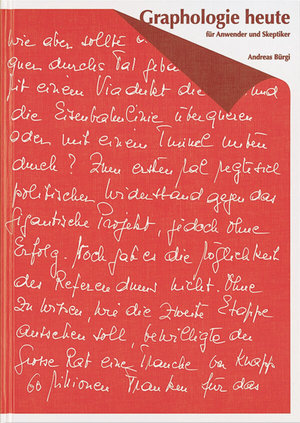 Graphologie heute
für Anwender und Skeptiker
Andreas Bürgi
wie aber sollte
quer durchs Tal geba
mit einem Viadukt die und
die Eisenbahnlinie überqueren
oder mit einem Tunnel unten
durch? Zum ersten Mal regte sich
politischen Widerstand gegen das
gigantische Projekt, jedoch ohne
Erfolg. Noch gab es die Möglichkeit
des Referendums nicht. Ohne
zu wissen, wie die zweite Etappe
aussehen soll, bewilligte der
Grosse Rat eine Tranche von knapp
60 Millionen Franken für das